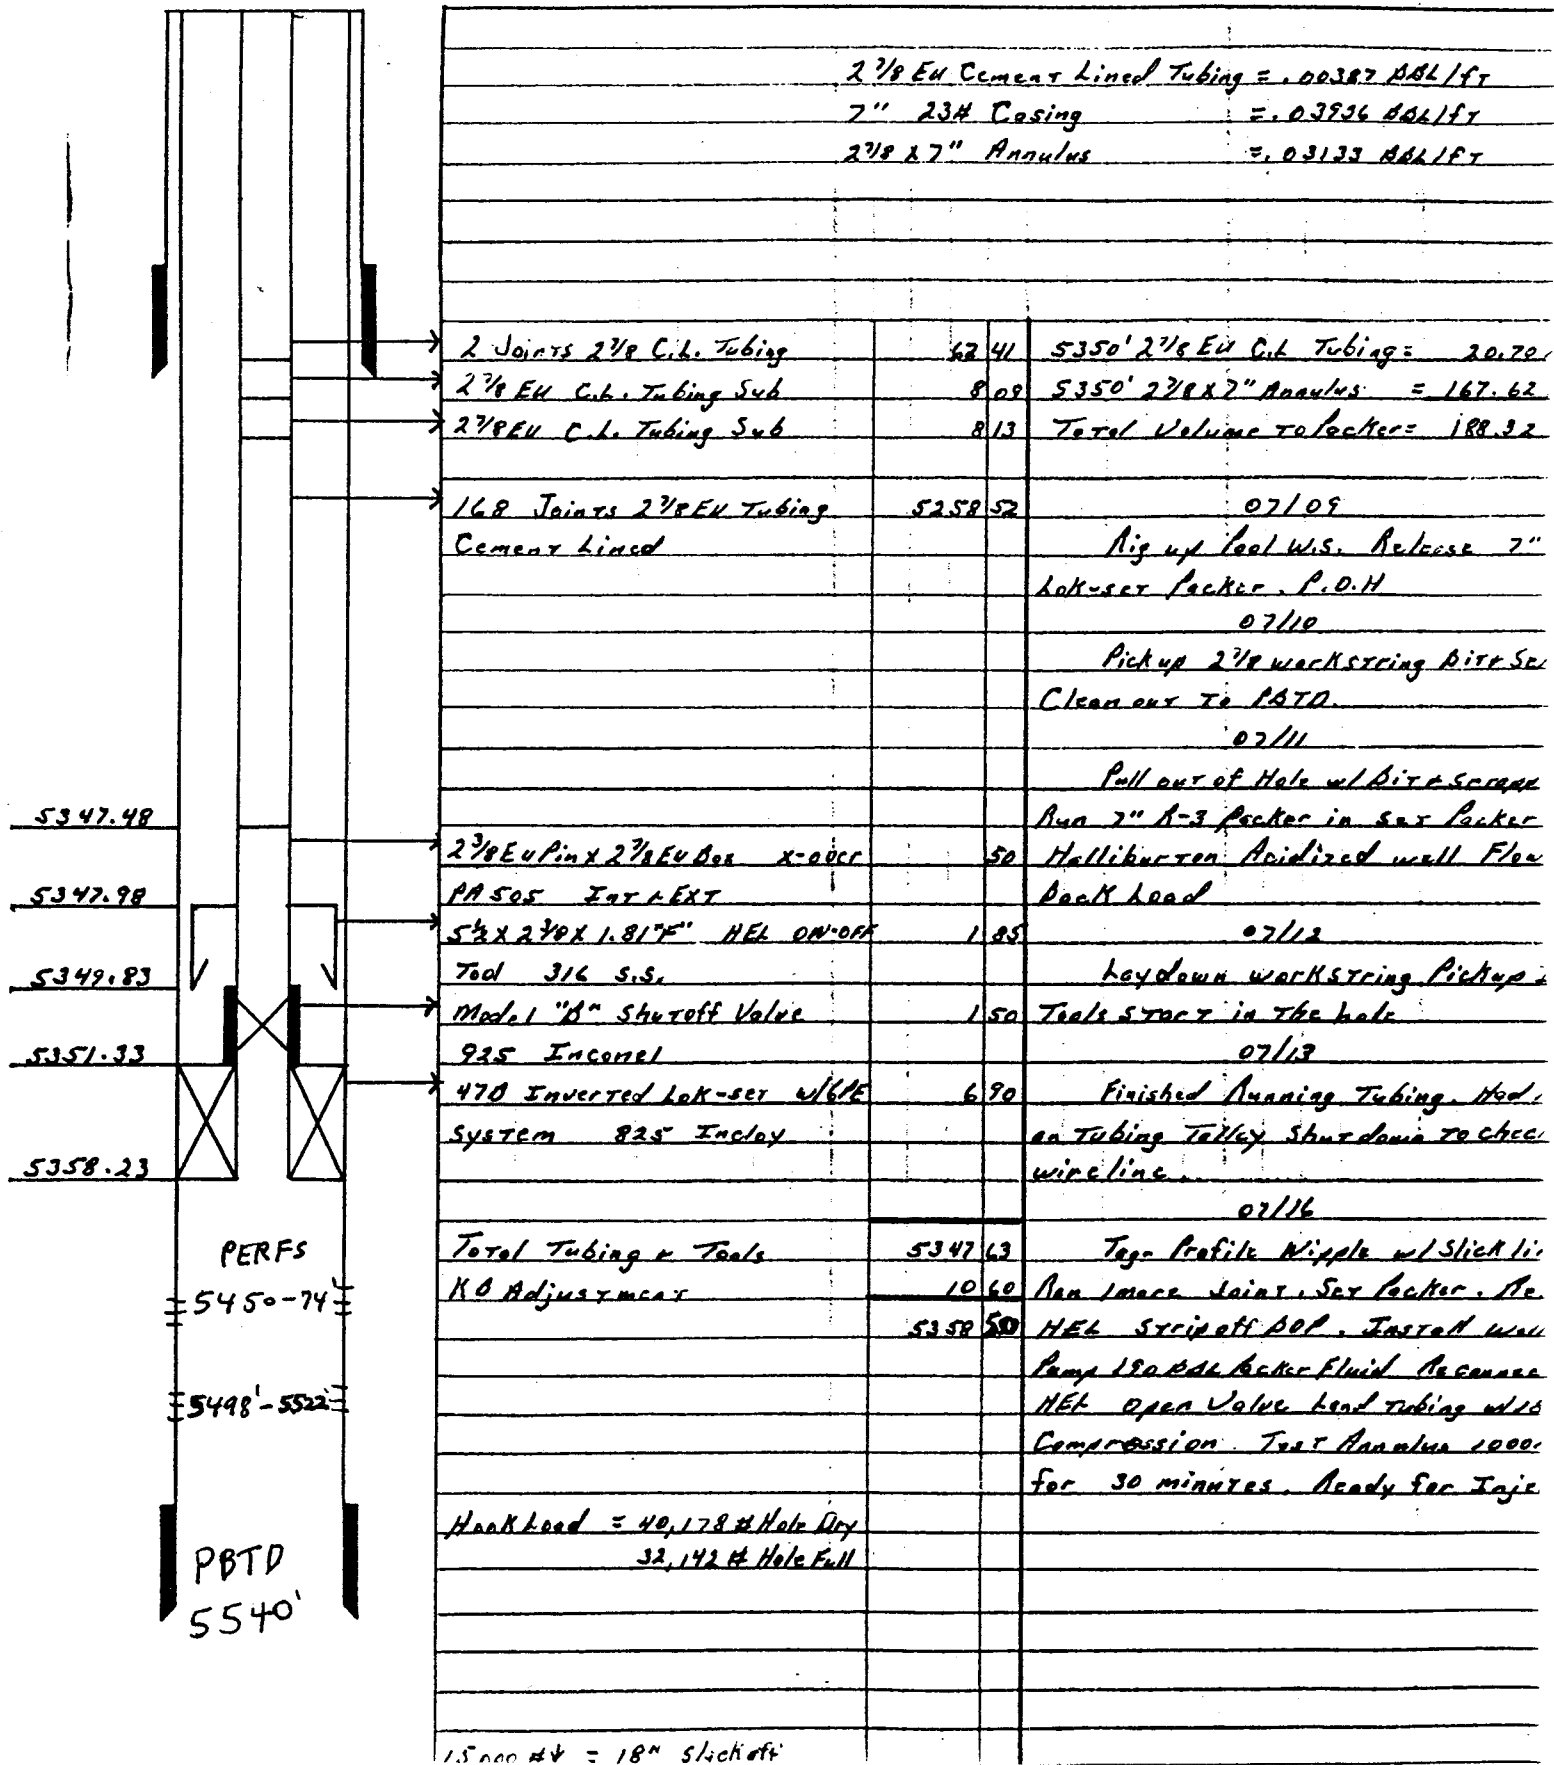 2 7/8 EU Cement Lined Tubing = .00387 BBL/ft
7" 23# Casing = .03936 BBL/ft
2 7/8 X 7" Annulus = .03133 BBL/ft
2 Joints 2 7/8 C.L. Tubing 62 41
2 7/8 EU C.L. Tubing Sub 8 09
2 7/8 EU C.L. Tubing Sub 8 13
168 Joints 2 7/8 EU Tubing 5258 52
Cement Lined
5347.48
2 3/8 EU Pin X 2 7/8 EU Box X-over 50
5347.98
PA 505 INT & EXT
5 1/2 X 2 3/8 X 1.81 "F" HEL ON-OFF 1 85
5349.83
Tool 316 S.S.
Model "B" Shutoff Valve 1 50
5351.33
925 Inconel
470 Inverted Lok-set w/GPE 6 90
System 825 Incloy
5358.23
PERFS
5450-74'
5498'-5522'
PBTD
5540'
Total Tubing & Tools 5347 63
KB Adjustment 10 60
5358 50
Hook Load = 40,178 # Hole Dry
32,142 # Hole Full
15000 #↓ = 18" Slickoff
5350' 2 7/8 EU C.L Tubing = 20.70
5350' 2 7/8 X 7" Annulus = 167.62
Total Volume To Packer = 188.32
07/09
Rig up Pool W.S. Release 7"
Lok-set Packer. P.O.H
07/10
Pick up 2 7/8 workstring Bit &
Clean out To PBTD.
07/11
Pull out of Hole w/ Bit & Scrape
Run 7" R-3 Packer in set Packer
Halliburton Acidized well Flow
Back Load
07/12
Laydown workstring Pickup
Tools start in The hole
07/13
Finished Running Tubing. Had
on Tubing Talley Shutdown To chec
wireline.
07/16
Tag Profile Nipple w/ Slick li
Ran 1 more Joint. Set Packer. Re
HEL Strip off BOP. Install well
Pump 190 BBL Packer Fluid Reconnec
HEL Open Valve Land Tubing w/
Compression. Test Annulus 1000
for 30 minutes. Ready for Inje